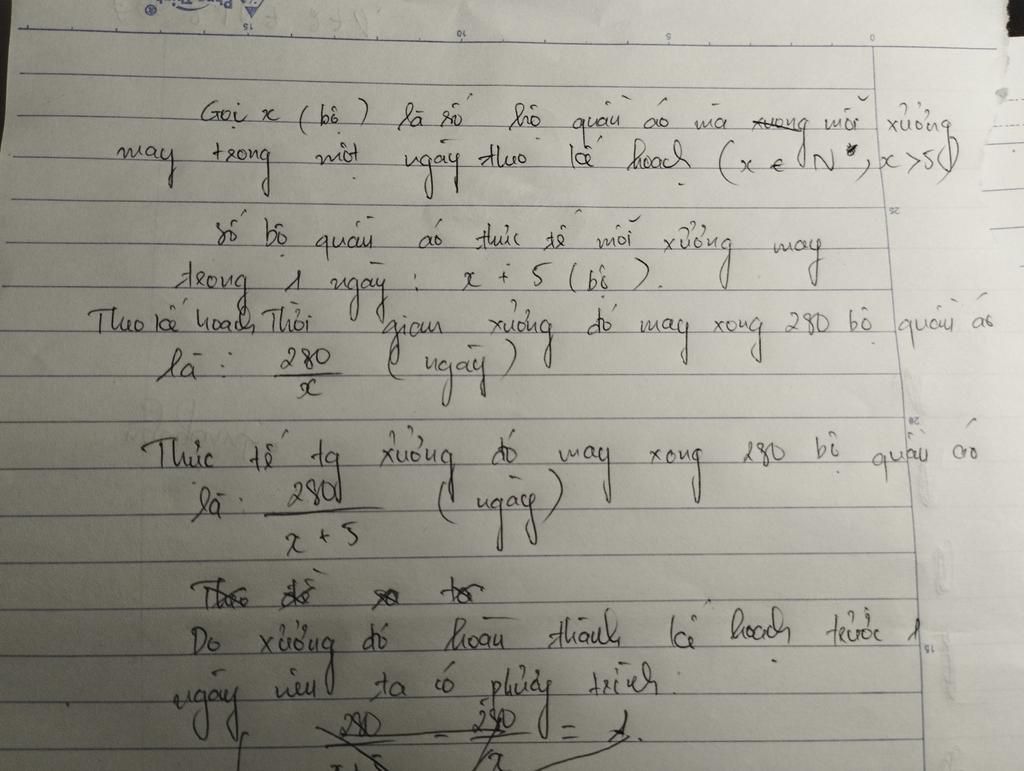 Gọi x (bộ) là số bộ quần áo mà xuong mỗi xưởng
may trong một ngày theo kế hoạch (x ∈ N*, x > 5)
số bộ quần áo thực tế mỗi xưởng may
trong 1 ngày : x + 5 (bộ).
Theo kế hoạch, Thời gian xưởng đó may xong 280 bộ quần áo
là : 280/x (ngày)
Thực tế tg xưởng đó may xong 280 bộ quần áo
là : 280/(x + 5) (ngày)
Theo đề
Do xưởng đó hoàn thành kế hoạch trước 1
ngày nên ta có phương trình :
280/(x+5) - 280/x = 1.
0 5 10 15
25
20
15